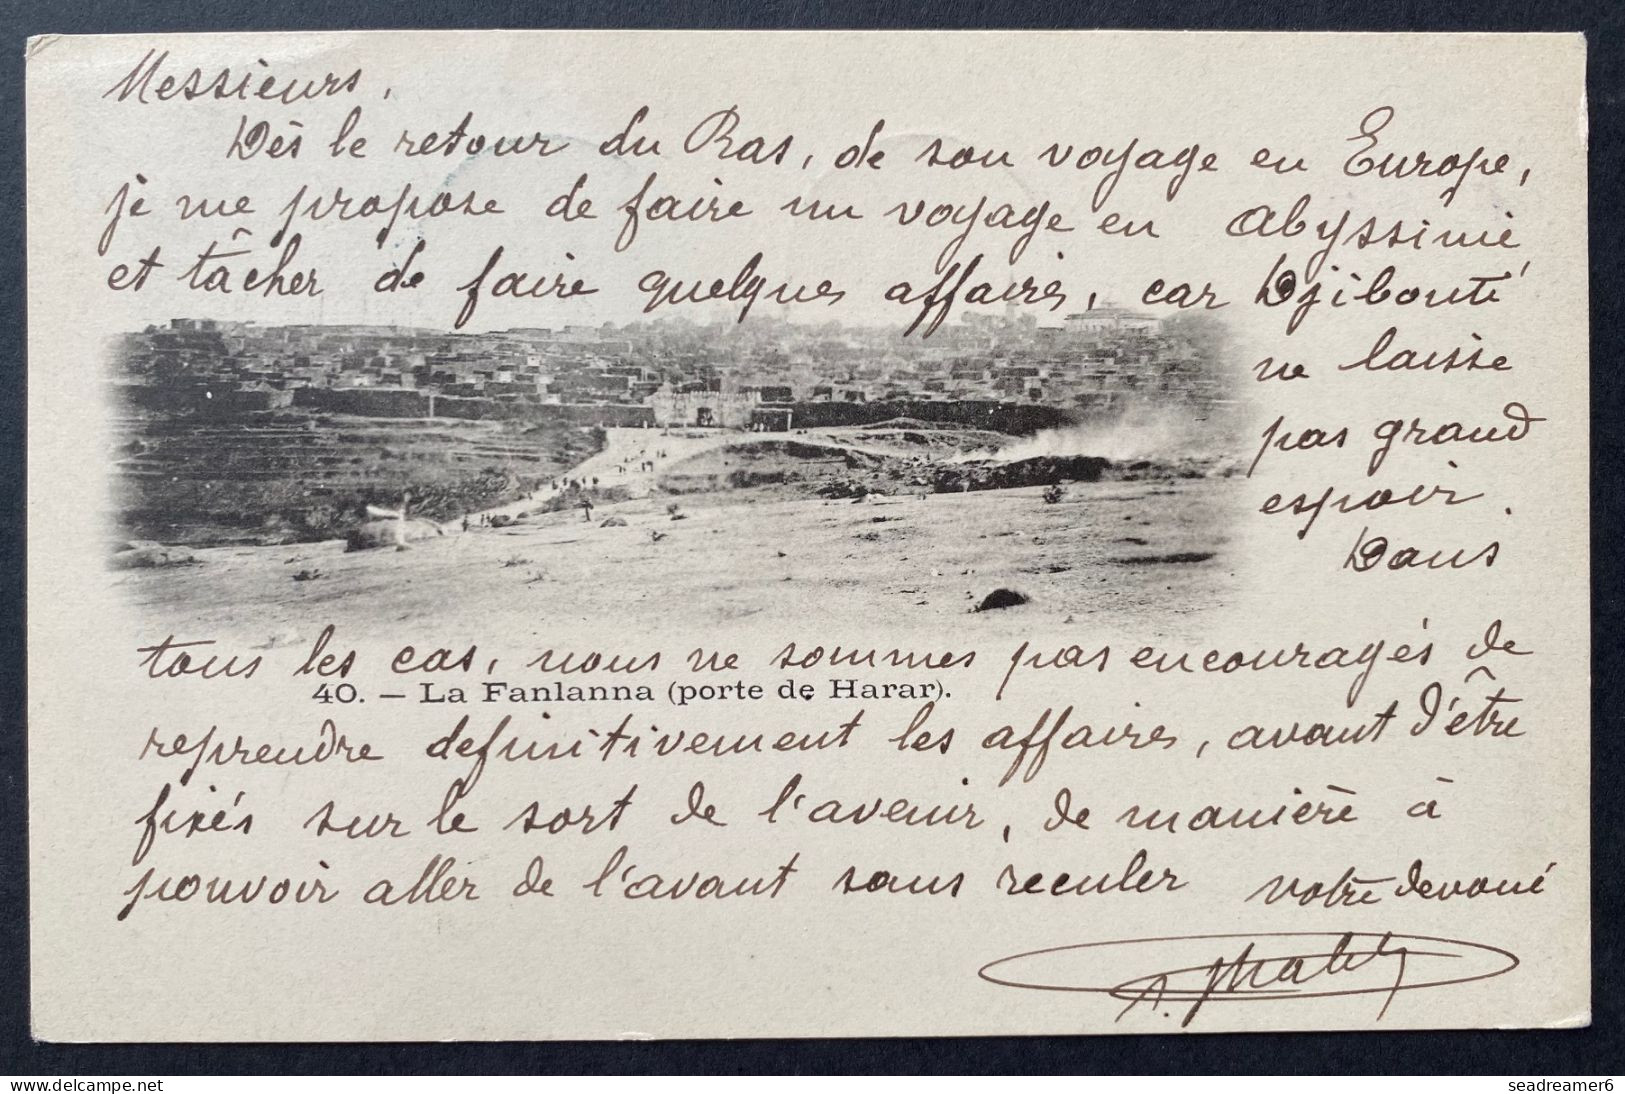 Messieurs,
Dès le retour du Ras, de son voyage en Europe,
je me propose de faire un voyage en Abyssinie
et tâcher de faire quelques affaires, car Djibouti
ne laisse
pas grand
espoir.
Dans
tous les cas, nous ne sommes pas encouragés de
40. — La Fanlanna (porte de Harar).
reprendre definitivement les affaires, avant d'être
fixés sur le sort de l'avenir, de manière à
pouvoir aller de l'avant sans reculer votre devoué
seadreamer6